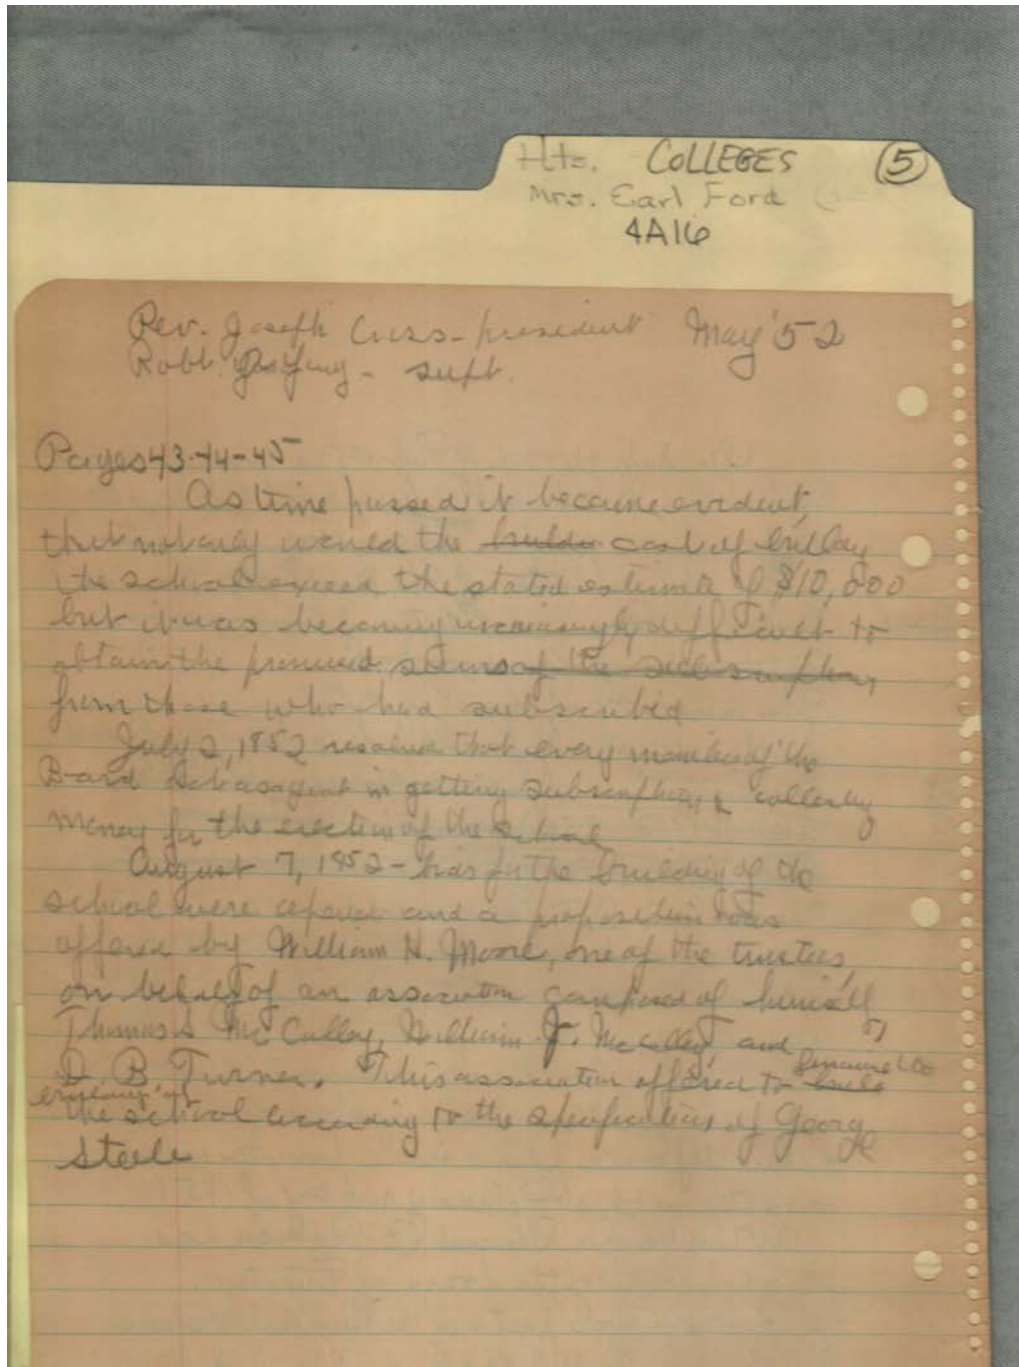 Hts. COLLEGES (5)
Mrs. Earl Ford
4A16
Rev. Joseph Cross - president May '52
Robt. Young - supt.
Pages 43-44-45
As time passed it became evident,
that not only would the cost of building
the school exceed the stated estimate of $10,000
but it was becoming increasingly difficult to
obtain the promised sums of the subscription
from those who had subscribed
July 2, 1852 resolved that every member of the
Board act as agent in getting subscriptions & collecting
money for the erection of the school
August 7, 1852 - bids for the building of the
school were opened and a proposition was
offered by William H. Moore, one of the trustees,
on behalf of an association composed of himself,
Thomas S McCalley, William J. McCalley, and
D. B. Turner. This association offered to finance the
building of
the school according to the specifications of George
Steele